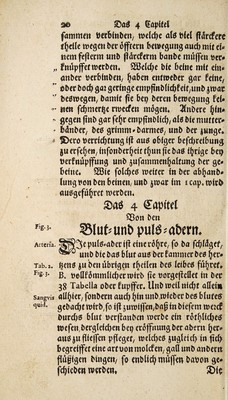 20 Das 4 Capitel
sammen verbinden, welche als viel stärckere
theile wegen der öfftern bewegung auch mit ei-
nem festern und stärckerm bande müssen ver-
knüpfft werden. Welche die beine mit ein-
ander verbinden, haben entweder gar keine,
oder doch gar geringe empfindlichkeit, und zwar
deswegen, damit sie bey deren bewegung kei-
nen schmertze erwecken mögen. Andere hin-
gegen sind gar sehr empfindlich, als die mutter-
bänder, des grimm-darmes, und der zunge.
Dero verrichtung ist aus obiger beschreibung
zu ersehen, insonderheit thun sie das ihrige bey
verknüpffung und zusammenhaltung der ge-
beine. Wie solches weiter in der abhand-
lung von den beinen, und zwar im 1 cap. wird
ausgeführet werden.
Das 4 Capitel
Von den
Blut- und puls-adern.
Fig. 3.
Arteria. Die puls-ader ist eine röhre, so da schläget,
und die das blut aus der kammer des her-
Tab. 2. zens zu den übrigen theilen des leibes führet.
Fig. 3. B. vollkömmlicher wird sie vorgestellet in der
38 Tabella oder kupffer. Und weil nicht allein
Sanguis allhier, sondern auch hin und wieder des blutes
quid. gedacht wird, so ist zuwissen, daß in diesem werck
durchs blut verstanden werde ein röthliches
wesen, dergleichen bey eröffnung der adern her-
aus zu fliessen pfleget, welches zugleich in sich
begreiffet eine art von molcken, gall und andern
flüßigen dingen, so endlich müssen davon ge-
schieden werden. Dit